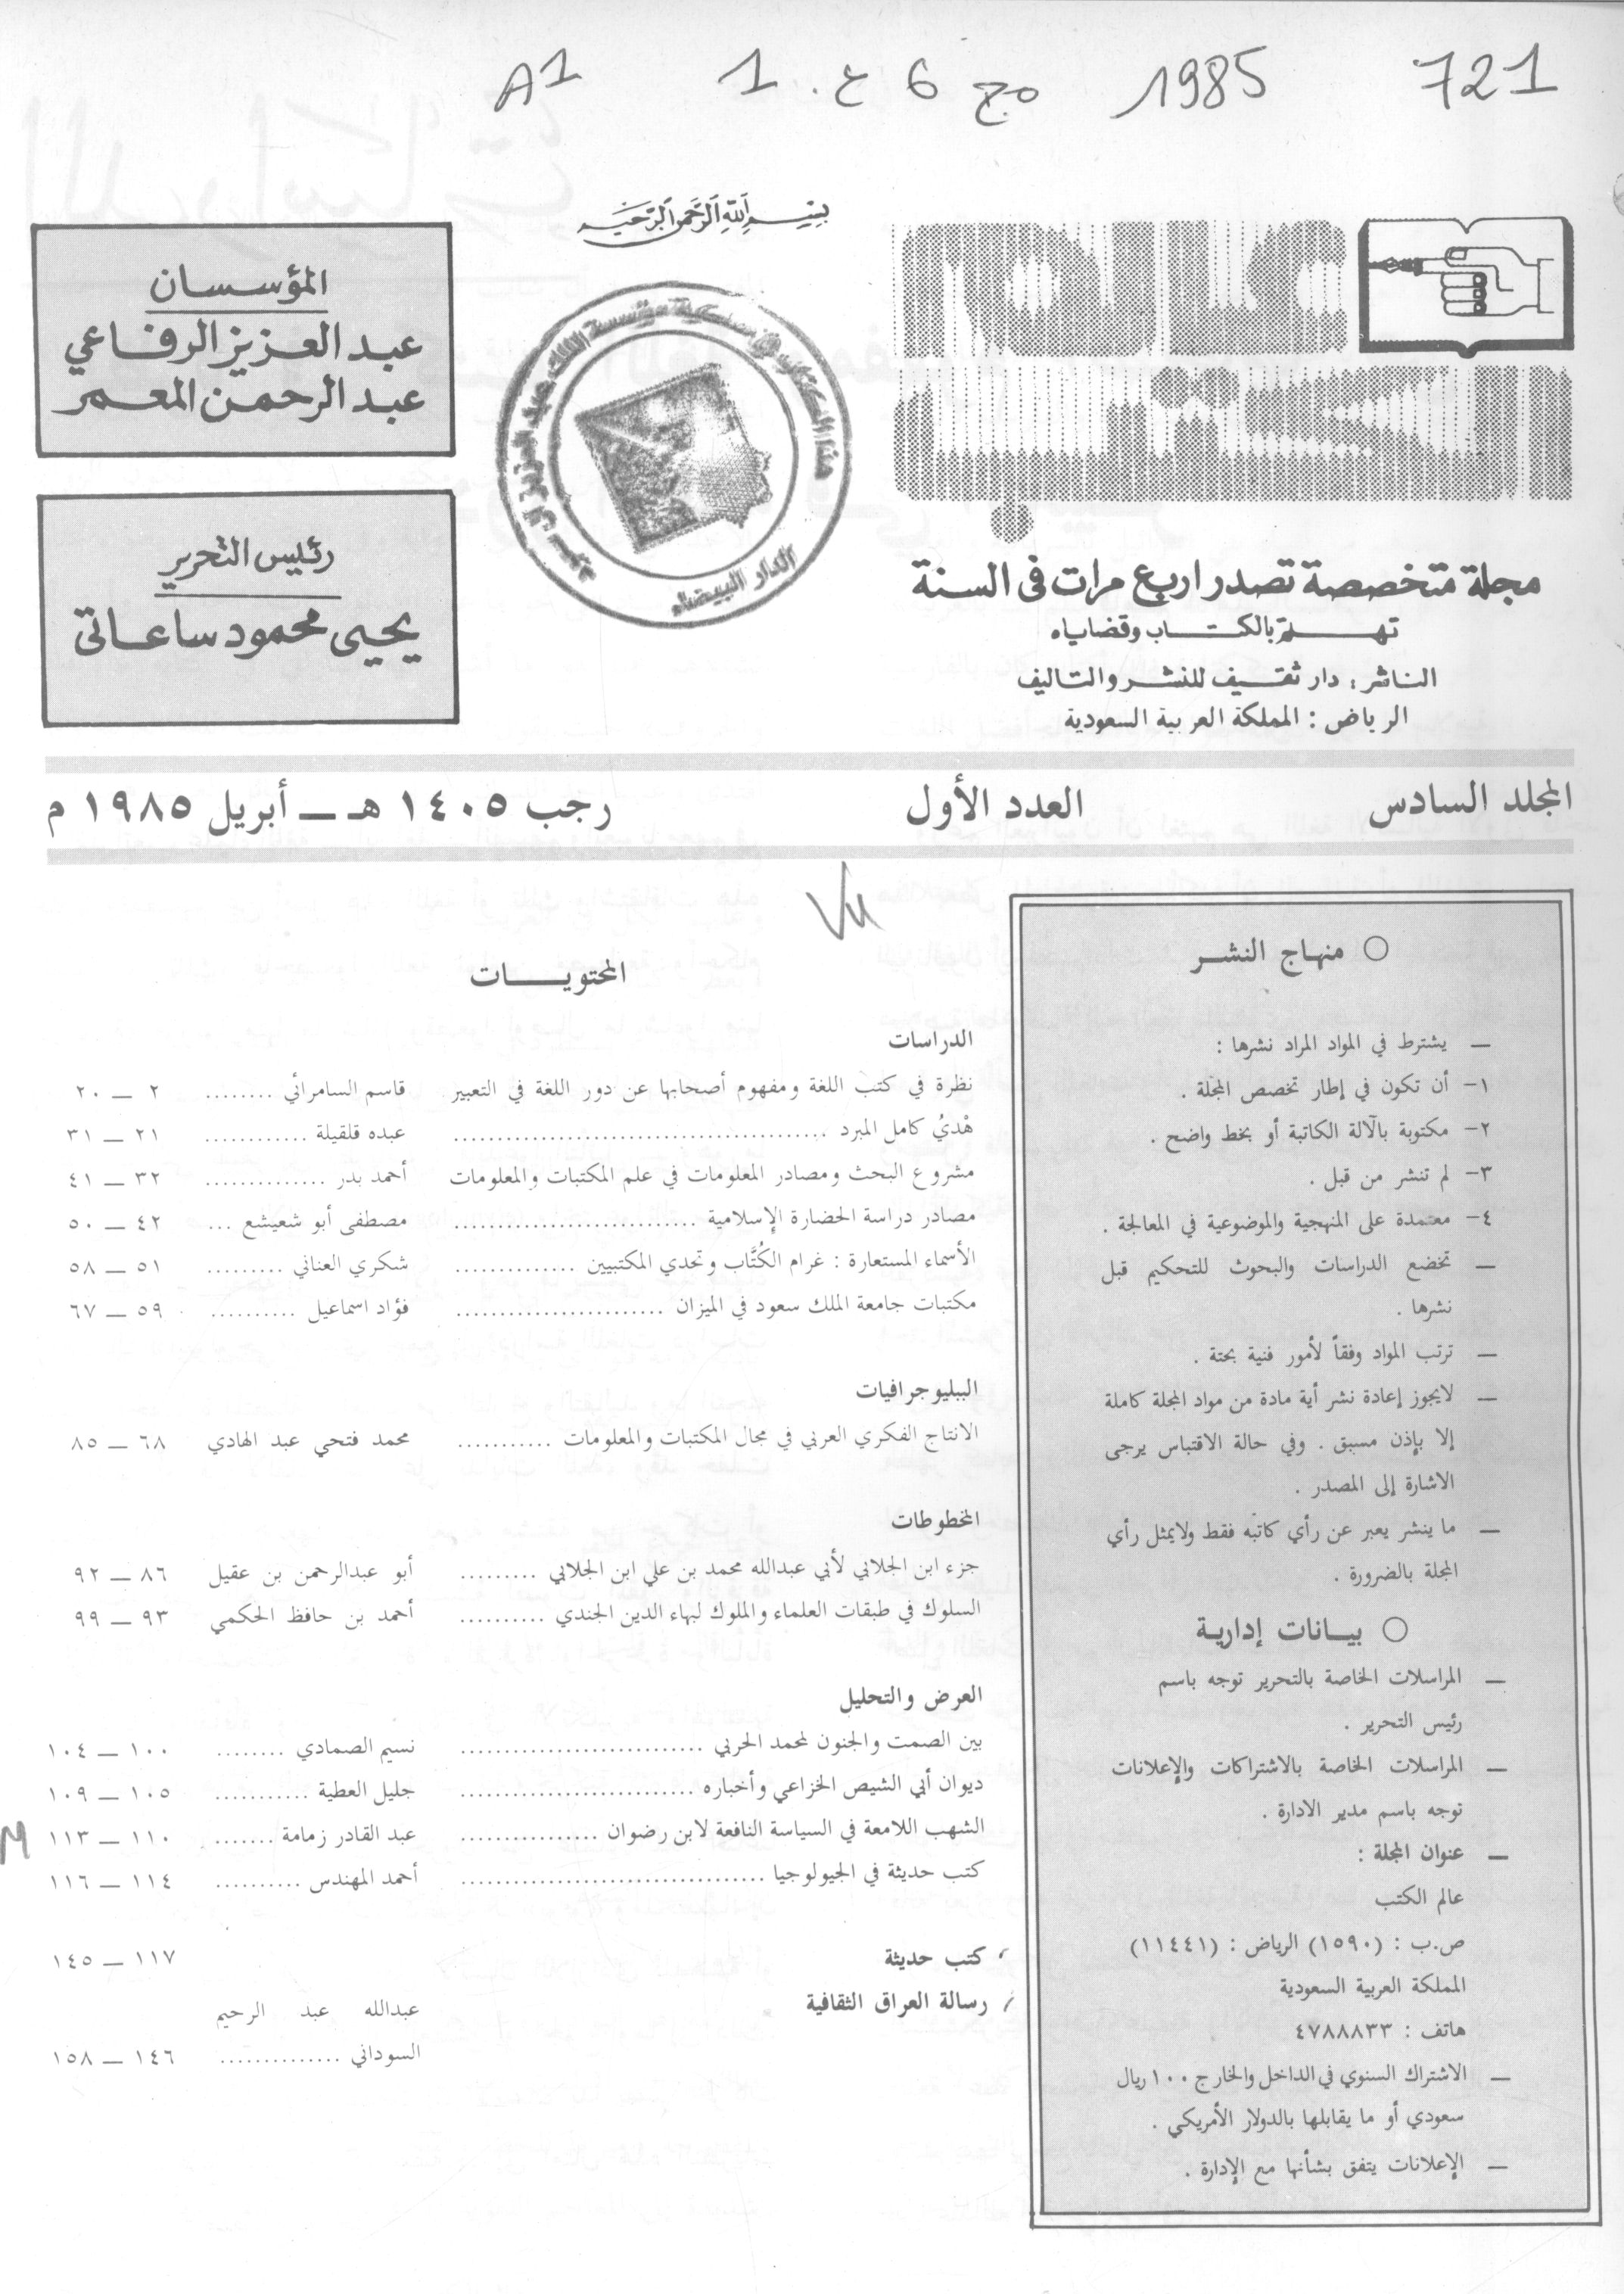 721 1985 مج 6 ع. 1 A1
بسم الله الرحمن الرحيم
عالم
الكتب
مجلة متخصصة تصدر اربع مرات فى السنة
تهـتم بالكتـاب وقضاياه
الناشر: دار ثقيف للنشر والتاليف
الرياض: المملكة العربية السعودية
هذا الكتاب في ملكية مؤسسة الملك عبد العزيز آل سعود
الدار البيضاء
المؤسسان
عبد العزيز الرفاعي
عبد الرحمن المعمر
رئيس التحرير
يحيى محمود ساعاتى
المجلد السادس العدد الأول رجب ١٤٠٥ هـ — أبريل ١٩٨٥ م
منهاج النشر
— يشترط في المواد المراد نشرها :
١- أن تكون في إطار تخصص المجلة .
٢- مكتوبة بالآلة الكاتبة أو بخط واضح .
٣- لم تنشر من قبل .
٤- معتمدة على المنهجية والموضوعية في المعالجة .
— تخضع الدراسات والبحوث للتحكيم قبل
نشرها .
— ترتب المواد وفقاً لأمور فنية بحتة .
— لايجوز إعادة نشر أية مادة من مواد المجلة كاملة
إلا بإذن مسبق . وفي حالة الاقتباس يرجى
الاشارة إلى المصدر .
— ما ينشر يعبر عن رأي كاتبه فقط ولايمثل رأي
المجلة بالضرورة .
بيـانات إدارية
— المراسلات الخاصة بالتحرير توجه باسم
رئيس التحرير .
— المراسلات الخاصة بالاشتراكات والإعلانات
توجه باسم مدير الادارة .
— عنوان المجلة :
عالم الكتب
ص.ب : (١٥٩٠) الرياض : (١١٤٤١)
المملكة العربية السعودية
هاتف : ٤٧٨٨٨٣٣
— الاشتراك السنوي في الداخل والخارج ١٠٠ ريال
سعودي أو ما يقابلها بالدولار الأمريكي .
— الإعلانات يتفق بشأنها مع الإدارة .
المحتويـــات
الدراسات
نظرة في كتب اللغة ومفهوم أصحابها عن دور اللغة في التعبير قاسم السامرائي ........ ٢ — ٢٠
هْديُ كامل المبرد ........ عبده قلقيلة ........ ٢١ — ٣١
مشروع البحث ومصادر المعلومات في علم المكتبات والمعلومات أحمد بدر ........ ٣٢ — ٤١
مصادر دراسة الحضارة الإسلامية ........ مصطفى أبو شعيشع ... ٤٢ — ٥٠
الأسماء المستعارة : غرام الكُتَّاب وتحدي المكتبيين ........ شكري العناني ........ ٥١ — ٥٨
مكتبات جامعة الملك سعود في الميزان ........ فؤاد اسماعيل ........ ٥٩ — ٦٧
الببليوجرافيات
الانتاج الفكري العربي في مجال المكتبات والمعلومات ........ محمد فتحي عبد الهادي ٦٨ — ٨٥
المخطوطات
جزء ابن الجلابي لأبي عبدالله محمد بن علي ابن الجلابي ........ أبو عبدالرحمن بن عقيل ٨٦ — ٩٢
السلوك في طبقات العلماء والملوك لبهاء الدين الجندي ........ أحمد بن حافظ الحكمي ٩٣ — ٩٩
العرض والتحليل
بين الصمت والجنون لمحمد الحربي ........ نسيم الصمادي ........ ١٠٠ — ١٠٤
ديوان أبي الشيص الخزاعي وأخباره ........ جليل العطية ........ ١٠٥ — ١٠٩
الشهب اللامعة في السياسة النافعة لابن رضوان ........ عبد القادر زمامة ....... ١١٠ — ١١٣
كتب حديثة في الجيولوجيا ........ أحمد المهندس ........ ١١٤ — ١١٦
كتب حديثة ١١٧ — ١٤٥
رسالة العراق الثقافية عبدالله عبد الرحيم
السوداني ........ ١٤٦ — ١٥٨